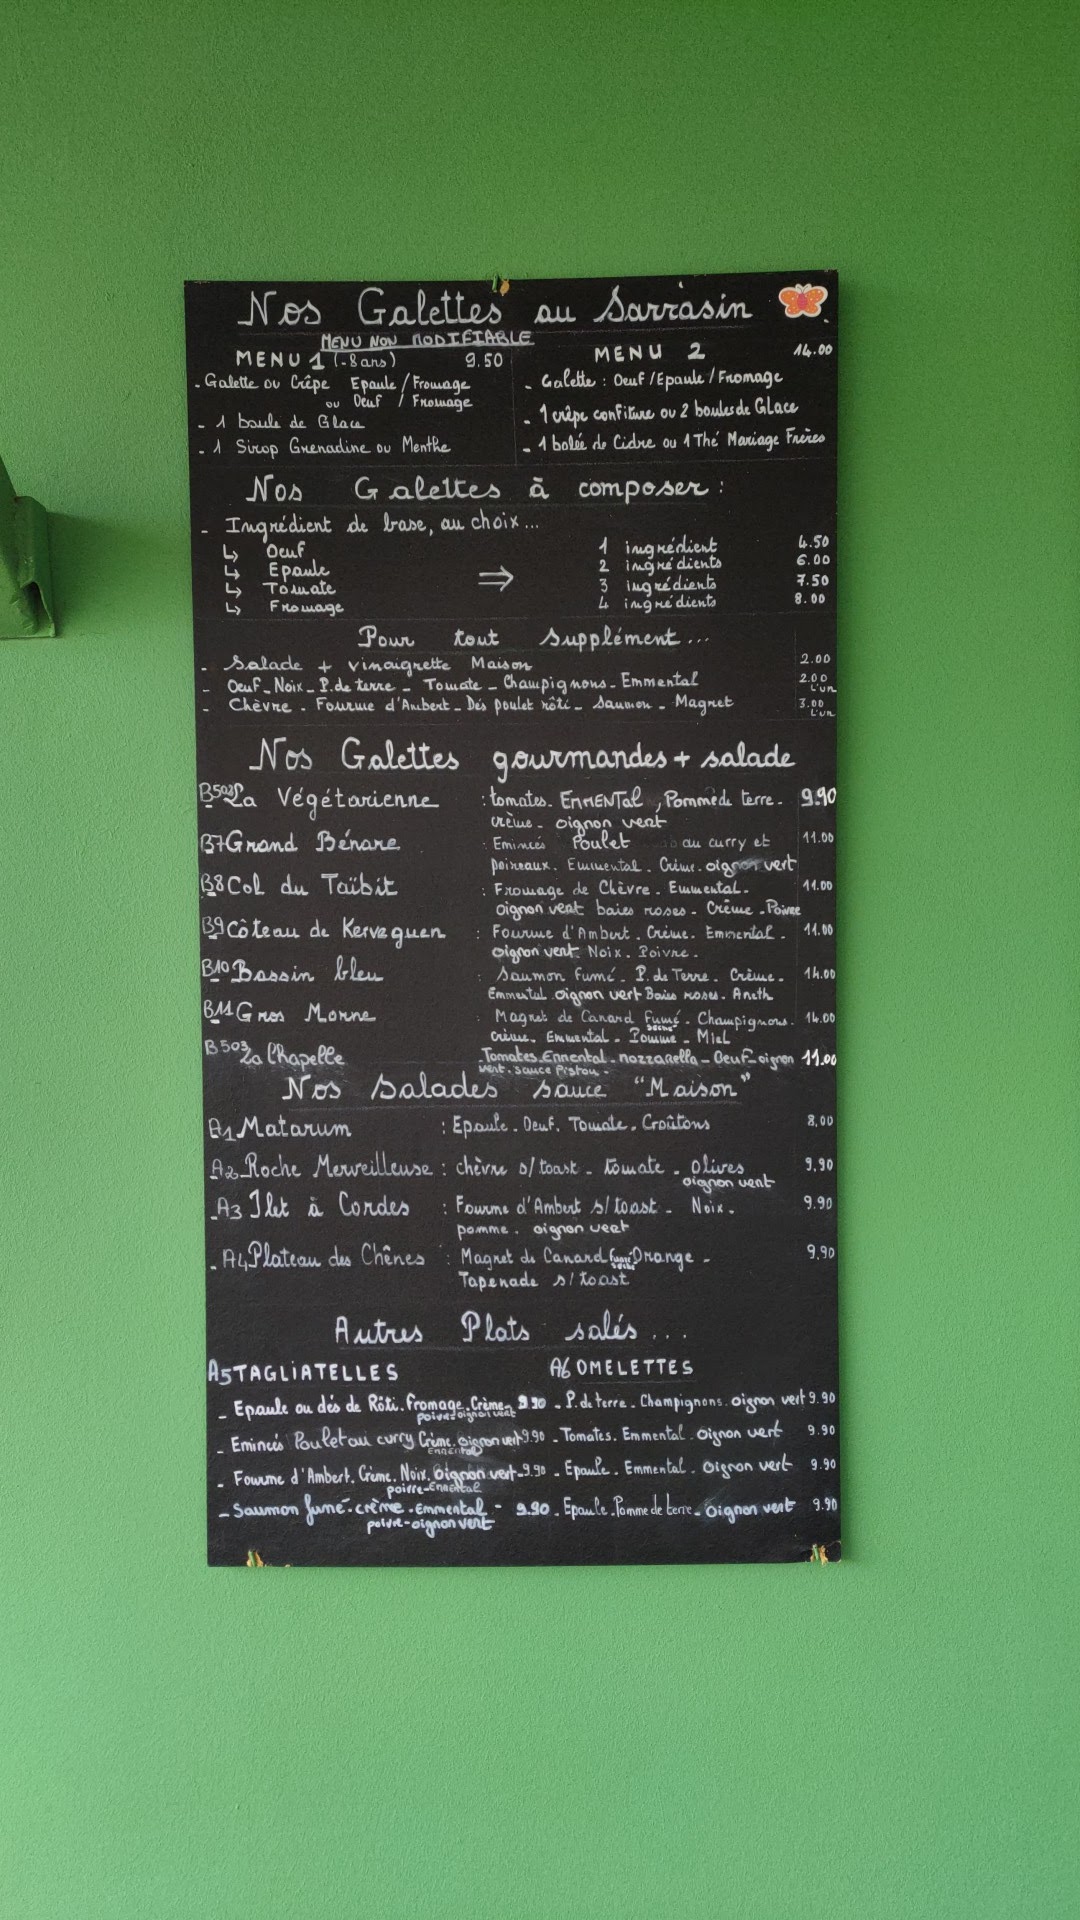 Nos Galettes au Sarrasin
MENU NON MODIFIABLE
MENU 1 (-8 ans) 9.50
- Galette ou Crêpe Epaule / Fromage
ou Oeuf / Fromage
- 1 boule de Glace
- 1 Sirop Grenadine ou Menthe
MENU 2 14.00
- Galette : Oeuf / Epaule / Fromage
- 1 crêpe confiture ou 2 boules de Glace
- 1 bolée de Cidre ou 1 Thé Mariage Frères
Nos Galettes à composer :
- Ingrédient de base, au choix...
↳ Oeuf
↳ Epaule
↳ Tomate
↳ Fromage
⇒
1 ingrédient 4.50
2 ingrédients 6.00
3 ingrédients 7.50
4 ingrédients 8.00
Pour tout supplément...
- Salade + vinaigrette Maison 2.00
- Oeuf - Noix - P. de terre - Tomate - Champignons - Emmental 2.00 L'un
- Chèvre - Fourme d'Ambert - Dés poulet rôti - Saumon - Magret 3.00 L'un
Nos Galettes gourmandes + salade
B502 La Végétarienne : tomates - EMMENTAL, Pomme de terre - 9.90
crème - oignon vert
B7 Grand Bénare : Emincés Poulet au curry et 11.00
poireaux. Emmental. Crème. oignon vert
B8 Col du Taïbit : Fromage de Chèvre. Emmental. 11.00
oignon vert baies roses. Crème. Poivre
B9 Côteau de Kerveguen : Fourme d'Ambert. Crème. Emmental. 11.00
oignon vert Noix. Poivre.
B10 Bassin bleu : Saumon Fumé. P. de Terre. Crème. 14.00
Emmental oignon vert Baies roses. Aneth
B11 Gros Morne : Magret de Canard Fumé séché. Champignons. 14.00
Crème. Emmental. Pomme. Miel
B503 La Chapelle Tomates. Emmental. mozzarella - Oeuf - oignon 11.00
vert. sauce Pistou.
Nos Salades sauce "Maison"
A1 Matarum : Epaule. Oeuf. Tomate. Croûtons 8,00
A2 Roche Merveilleuse : chèvre s/toast - tomate - olives 9,90
oignon vert
- A3 Ilet à Cordes : Fourme d'Ambert s/toast - Noix. 9.90
pomme. oignon vert
- A4 Plateau des Chênes : Magret de Canard fumé séché Orange - 9,90
Tapenade s/toast
Autres Plats salés...
A5 TAGLIATELLES
- Epaule ou dés de Rôti. fromage. Crème - 9.90
poivre oignon vert
- Emincés Poulet au curry Crème. oignon vert - 9.90
Emmental
- Fourme d'Ambert. Crème. Noix. Oignon vert - 9.90
poivre - Emmental
- Saumon fumé - crème - Emmental - 9.90
poivre - oignon vert
A6 OMELETTES
- P. de terre. Champignons. oignon vert 9.90
- Tomates. Emmental. oignon vert 9.90
- Epaule. Emmental. oignon vert 9.90
- Epaule. Pomme de terre - oignon vert 9.90